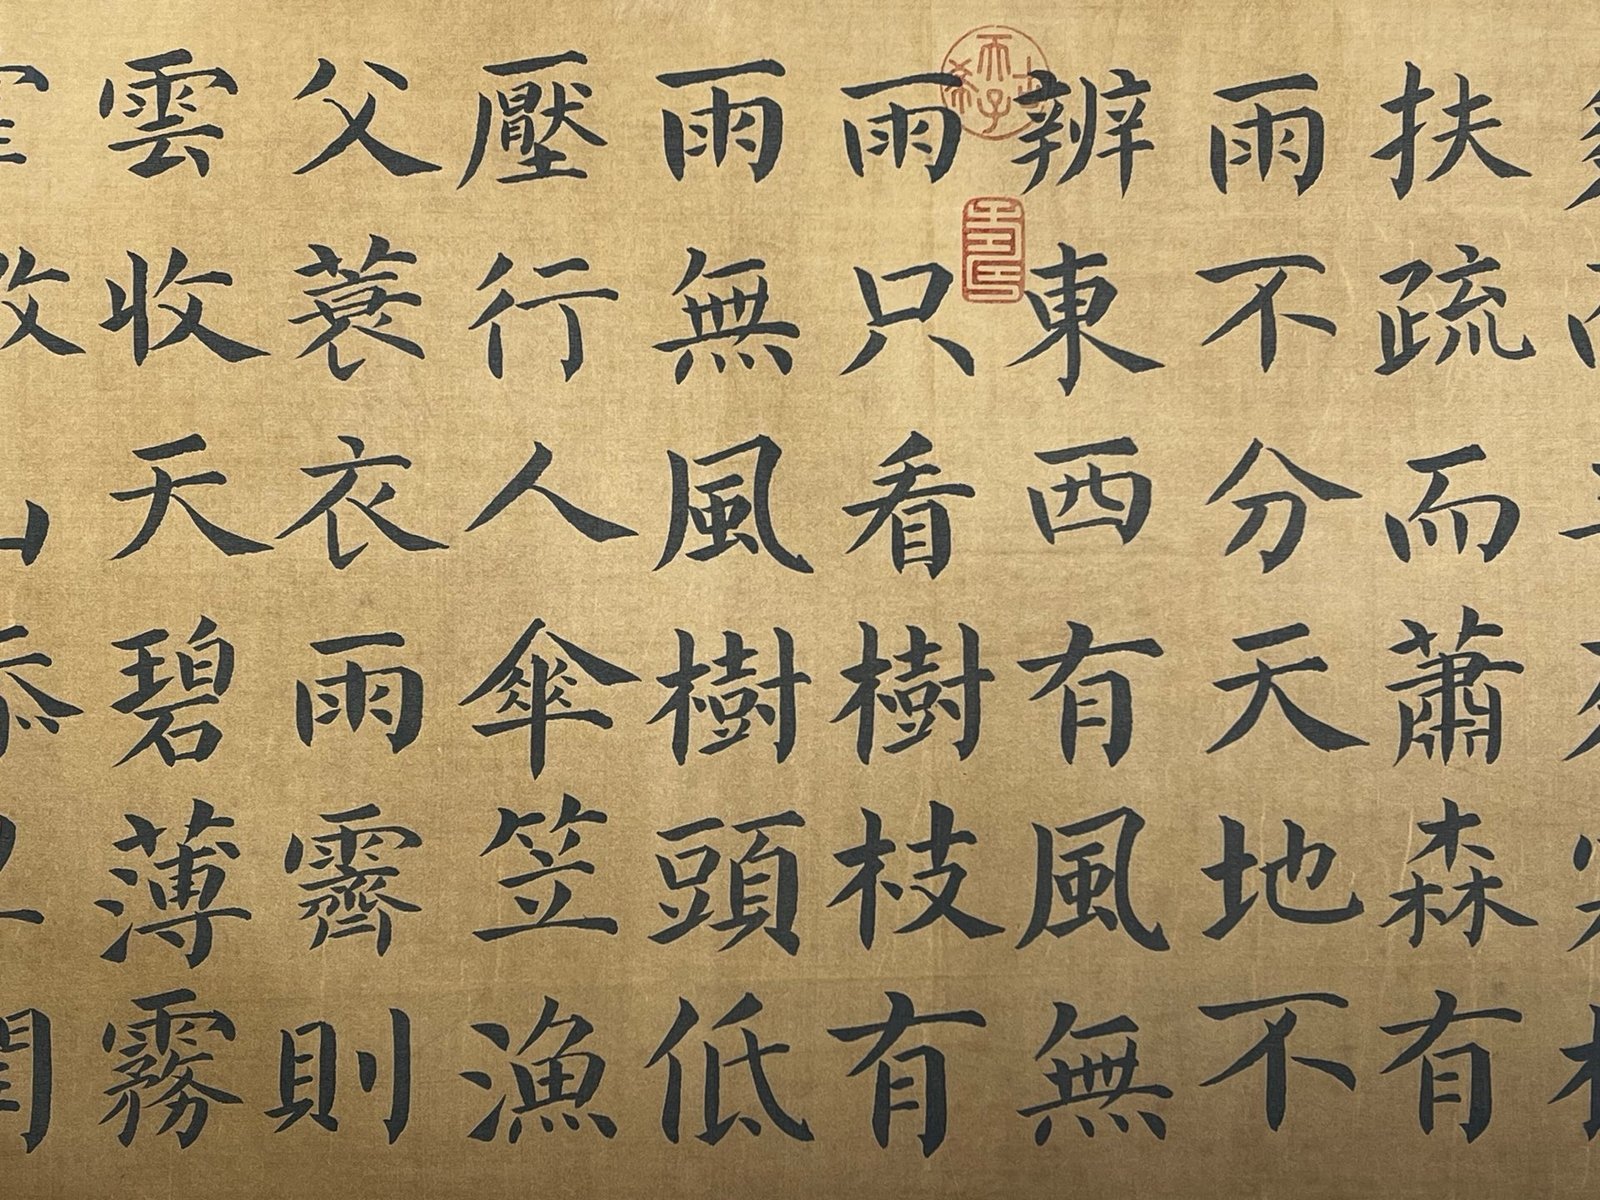 扶疏而蕭森有
雨不分天地不
辨東西有風無
雨只看樹枝有
雨無風樹頭低
壓行人傘笠漁
父蓑衣雨霽則
雲收天碧薄霧